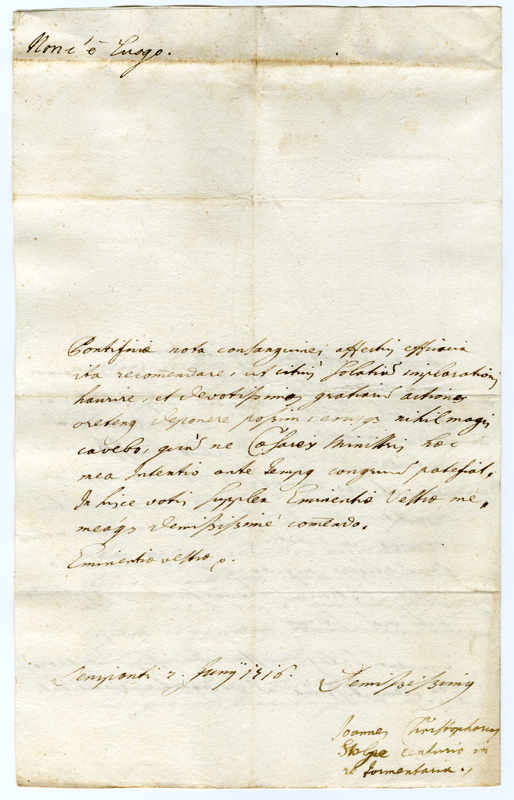 Non c'è luogo.
Pontificiæ nota consanguinei affectus efficacia
ita recomendare, ut citius solatiũ implorationis
haurire, et devotissimas gratiarũ actiones
oretenq deponere possim, eousq nihil magis
cavebo, quã ne Cæsareis Ministris hæc
mea intentio ante tempq congruũ patefiat.
In hisce votis supplex Eminentiæ Vestræ me,
meaq demississime comendo.
Eminentiæ vestræ
7. Junij 1716.
Demississimq
Joannes Christophorus
centurio in
re tormentaria.